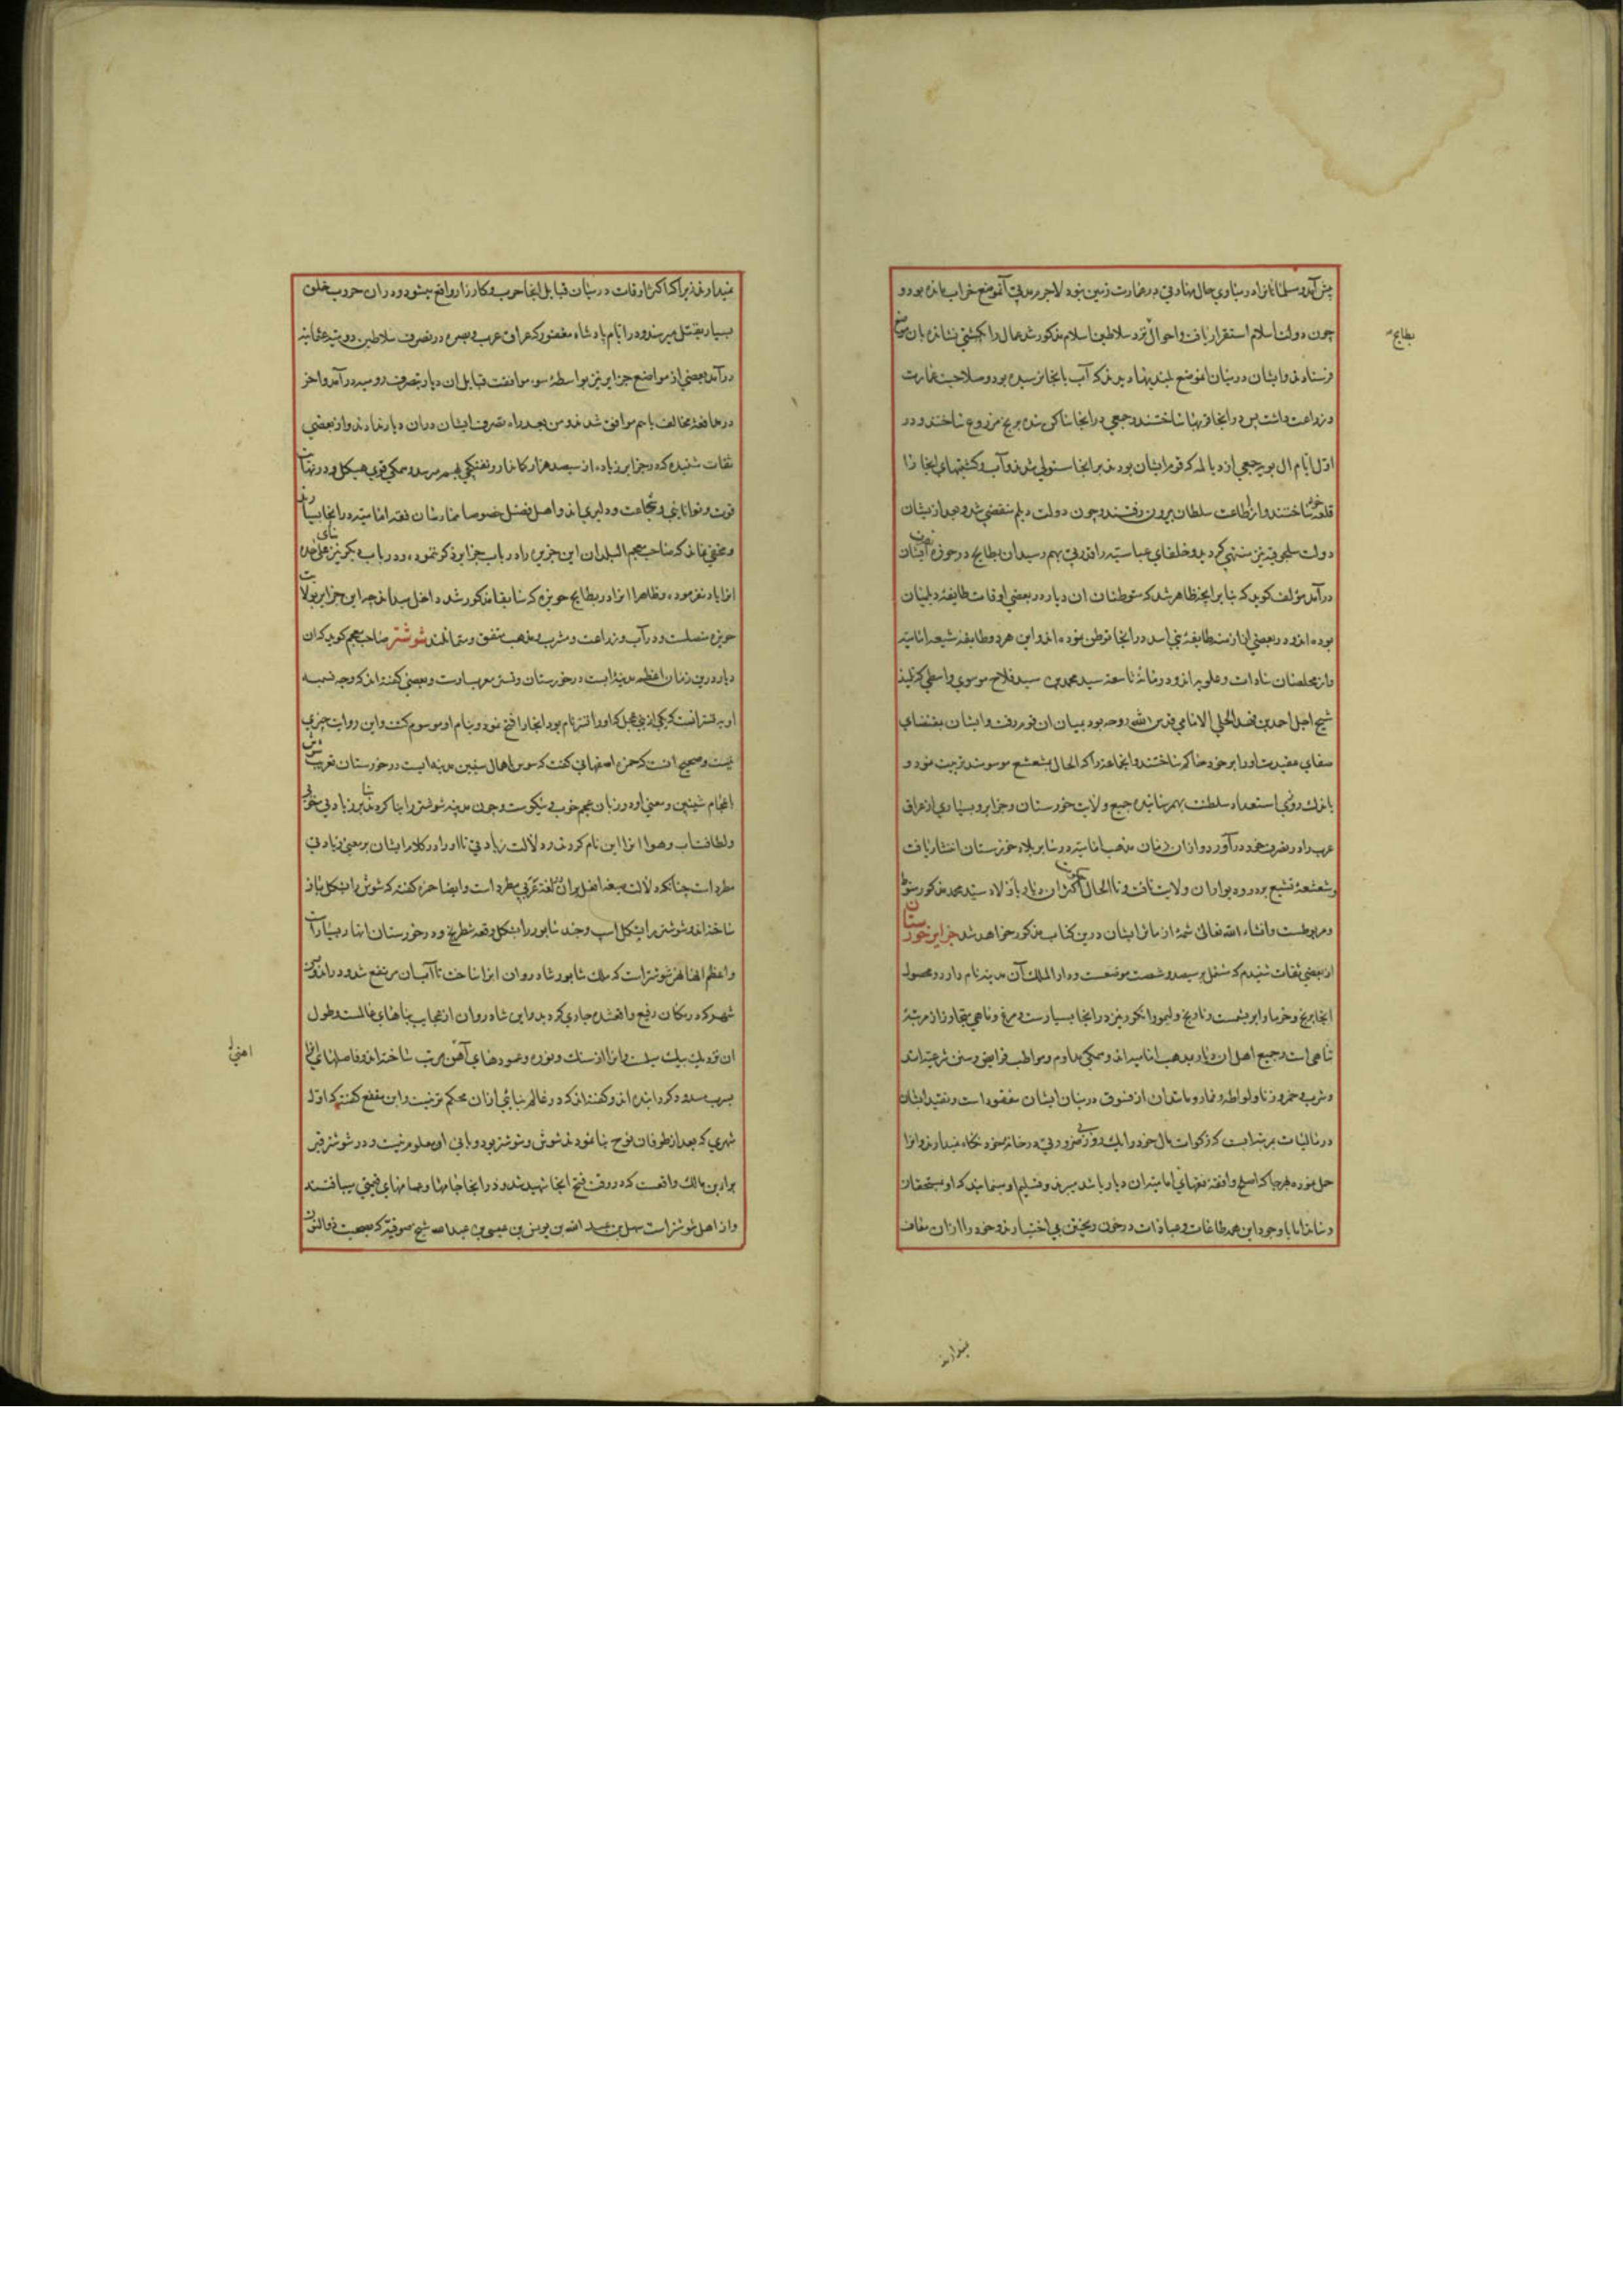 پیش آمد و مسلمانان را در مبادی حال مهارتی در عمارت زمین نبود لاجرم مدتی آن موضع خراب مانده بود و
چون دولت اسلام استقرار یافت و احوال نزد سلاطین اسلام مذکور شد عمال را بکشتی نشانده بان موضع
بطایح
فرستادند و ایشان در میان آن موضع بلندیها دیدند که آب بانجا نرسیده بود و صلاحیت عمارت
و زراعت داشت پس در انجا قریها ساختند و جمعی در انجا ساکن شده برنج مزروع ساختند و در
اول ایام آل بویه جمعی از دیالمه که قوم ایشان بودند بر انجا مستولی شدند و آب و کشتیهای انجا را
قلعه خود ساختند و از اطاعت سلطان بیرون رفتند و چون دولت دیلم منقضی شد و بعد از ایشان
دولت سلجوقیه نیز منتهی گردید و خلفای عباسیه را فرونی بهم رسید ان بطایح در حوزه تصرف ایشان
درآمد مؤلف کوید که بنا بر انچه ظاهر شد که متوطنان ان دیار در بعضی اوقات طایفه دیلمیان
بوده اند و در بعضی از ازمنه طایفه بنی اسد در انجا توطن نموده اند و این هر دو طایفه شیعه امامیه
و از مخلصان سادات و علویه اند و در مائه تاسعه سید محمد بن سید فلاح موسوی واسطی که تلمیذ
شیخ اجل احمد بن فهد الحلی الامامی قدس الله روحه بود بمیان ان قوم رفت و ایشان بمقتضای
صفای عقیدت او را بر خود حاکم ساختند و انجماعت را که الحال بمشعشع موسومند تربیت نمود و
باندک روزی استعداد سلطنت بهم رسانیده جمیع ولایت خوزستان و جزایر و بسیاری از عراق
عرب را در تصرف خود درآورد و از ان زمان مذهب امامیه در سایر بلاد خوزستان انتشار یافت
و شعشعه تشیع بر در و دیوار ان ولایت تافت و تا الحال حکومت اکثر ان دیار باولاد سید محمد مذکور منوط
و مربوطست و انشاء الله تعالی شمهٔ از مآثر ایشان درین کتاب مذکور خواهد شد جزایر خوزستان
از بعضی ثقات شنیدم که مشتمل بر سیصد و شصت موضعست و دار الملک آن مدینه نام دارد و محصول
انجا برنج و خرما و ابریشمست و نارنج و لیمو و انکور نیز در انجا بسیارست و مرغ و ماهی متجاوز از مرتبهٔ
تناهی است و جمیع اهل ان دیار بمذهب امامیه اند و همکی مداوم و مواظب فرایض و سنن شرعیه اند
و شرب خمر و زنا و لواطه و قمار و مانند ان از فسوق در میان ایشان مفقود است و تقید ایشان
در مالیات بمرتبه ایست که زکوات مال خود را یک روز و دو روز در خانه خود نگاه نمیدارند و انرا
حمل نموده هر جا که اصلح و افقه فقهای امامیه ان دیار باشد میبرند و تسلیم او مینمایند که او بمستحقان
رساند اما با وجود این همه طاعات و عبادات در خون ریختن بی اختیارند و خود را از ان معاف
نمیدارند
نمیدارند زیرا که اکثر اوقات در میان قبایل انجا حرب و کارزار واقع میشود و در ان حروب خلق
بسیار بقتل میرسند و در ایام پادشاه مغفور که عراق عرب و بصره در تصرف سلاطین رومیه عثمانیه
درآمد بعضی از مواضع جزایر نیز بواسطهٔ سوء موافقت قبایل ان دیار بتصرف رومیه درآمد و اخر
در مدافعهٔ مخالف باهم موافق شدند و من بعد راه تصرف ایشان در ان دیار ندادند و از بعضی
ثقات شنیده که در جزایر زیاده از سیصد هزار کماندار و تفنکچی بهم میرسد و همکی قوی هیکل و در نهایت
قوت و توانایی و شجاعت و دلیری اند و اهل فضل خصوصا ممارسان فقه امامیه در انجا بسیارند
و مخفی نماند که صاحب معجم البلدان این جزیره را در باب جزایر ذکر ننموده و در باب دیگر نیز بنای علیحده
انرا یاد نفرموده و ظاهرا انرا در بطایح حویزه که سابقا مذکور شد داخل میداند چه این جزایر بولایت
حویزه متصلست و در آب و زراعت و مشرب و مذهب متفق و متماثلند شوشتر صاحب معجم کوید که ان
دیار درین زمان اعظم مدینه ایست در خوزستان و تستر معرب اوست و بعضی کفته اند که وجه تسمیه
او به تستر انست که یکی از بنی عجل که او را تستر نام بود انجا را فتح نمود و بنام او موسوم کشت و این روایت چیزی
نیست و صحیح انست که حمزه اصفهانی کفت که سوس باهمال سینین مدینه ایست در خوزستان تعریب شوش
باعجام شینین و معنی او در زبان عجم خوب و نیکوست و چون مدینه شوشتر را بنا کردند بنا بر زیادتی خوبی
و لطافت آب و هوا انرا این نام کردند و دلالت زیادتی تا و را در کلام ایشان بر معنی زیادتی
مطرد است چنانکه دلالت صیغه افعل بر ان در لغة عربی مطرد است و ایضا حمزه کفته که شوش را بشکل باز
ساخته اند و شوشتر را بشکل اسب و جند شابور را بشکل رقعه شطرنج و در خوزستان انهار بسیار است
و اعظم انها نهر شوشتر است که ملک شابور شادروان انرا ساخت تا آب ان مرتفع شود و در اندرون
شهر که در مکان رفیع واقعشده جاری کردد و این شادروان از عجایب بناهای عالمست و طول
ان نزدیک بیک میلست و انرا از سنک و نوره و عمودهای آهن مرتب ساخته اند و فاصلهای انرا
اهنی
بسرب مسدود کردانیده اند و کفته اند که در عالم بنایی از ان محکم تر نیست و ابن مقفع کفته که اول
شهری که بعد از طوفان نوح بنا نمودند شوش و شوشتر بود و بانی او معلوم نیست و در شوشتر قبر
براء بن مالک واقعست که در وقت فتح انجا شهید شد و در انجا جامها و عمامهای قیمتی میبافتند
و از اهل شوشتر است سهل بن عبد الله بن یونس بن عیسی بن عبدالله شیخ صوفیه که صحبت ذوالنون